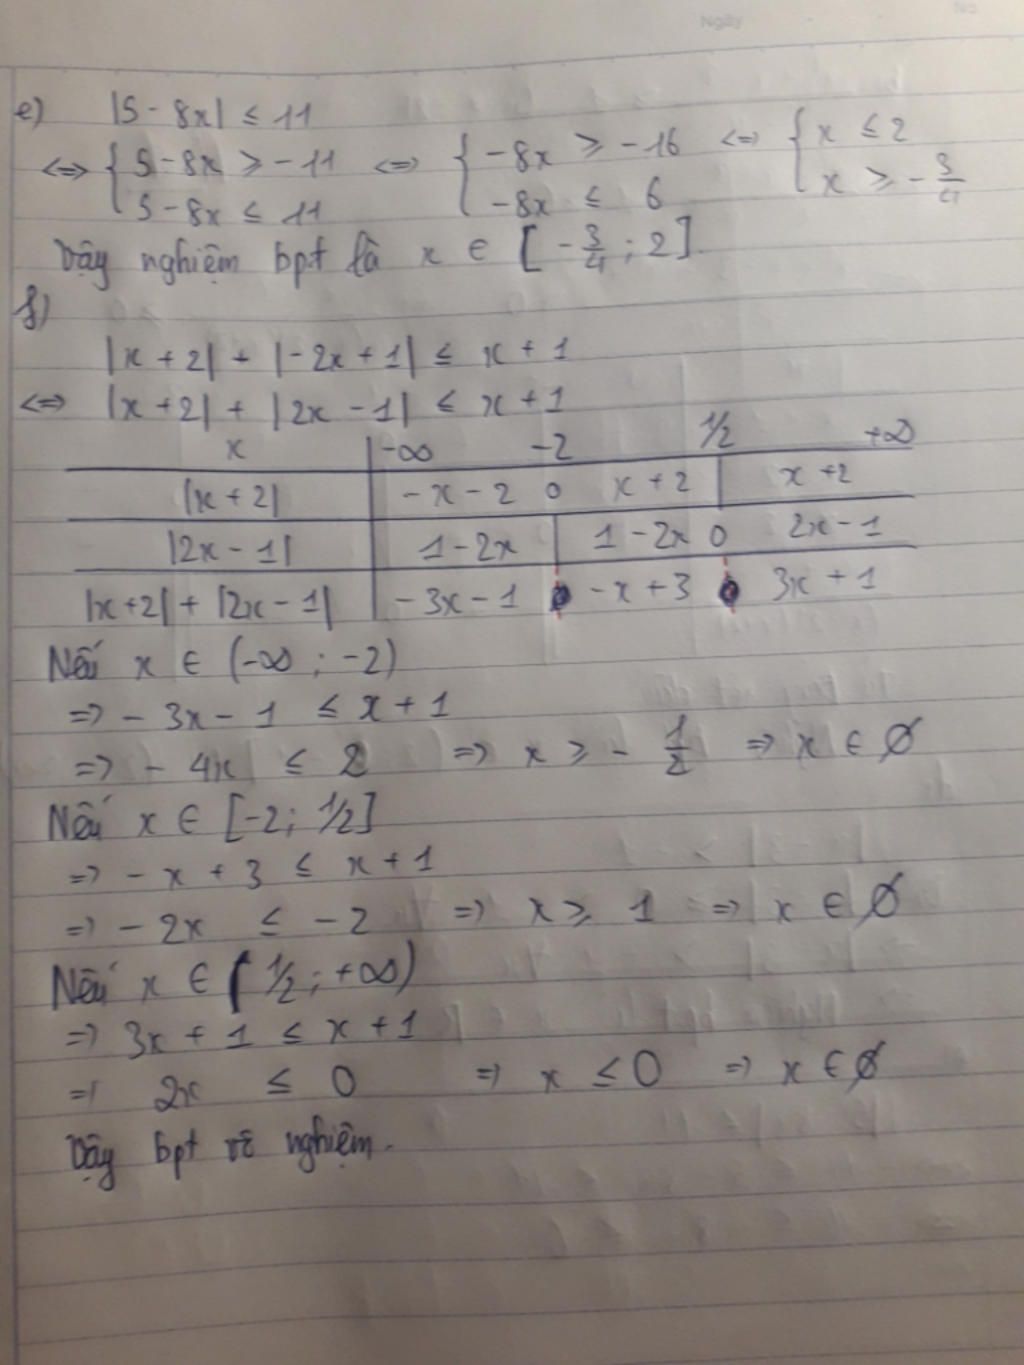 Ngày No
e) |5 - 8x| ≤ 11
<=> { 5 - 8x ≥ -11 <=> { -8x ≥ -16 <=> { x ≤ 2
5 - 8x ≤ 11 -8x ≤ 6 x ≥ -3/4
Vậy nghiệm bpt là x ∈ [-3/4 ; 2].
f)
|x + 2| + |-2x + 1| ≤ x + 1
<=> |x + 2| + |2x - 1| ≤ x + 1
x -∞ -2 1/2 +∞
|x + 2| -x - 2 0 x + 2 | x + 2
|2x - 1| 1 - 2x | 1 - 2x 0 2x - 1
|x + 2| + |2x - 1| -3x - 1 -x + 3 3x + 1
Nếu x ∈ (-∞ ; -2)
=> -3x - 1 ≤ x + 1
=> -4x ≤ 2 => x ≥ -1/2 => x ∈ Ø
Nếu x ∈ [-2; 1/2]
=> -x + 3 ≤ x + 1
=> -2x ≤ -2 => x ≥ 1 => x ∈ Ø
Nếu x ∈ (1/2; +∞)
=> 3x + 1 ≤ x + 1
=> 2x ≤ 0 => x ≤ 0 => x ∈ Ø
Vậy bpt vô nghiệm.